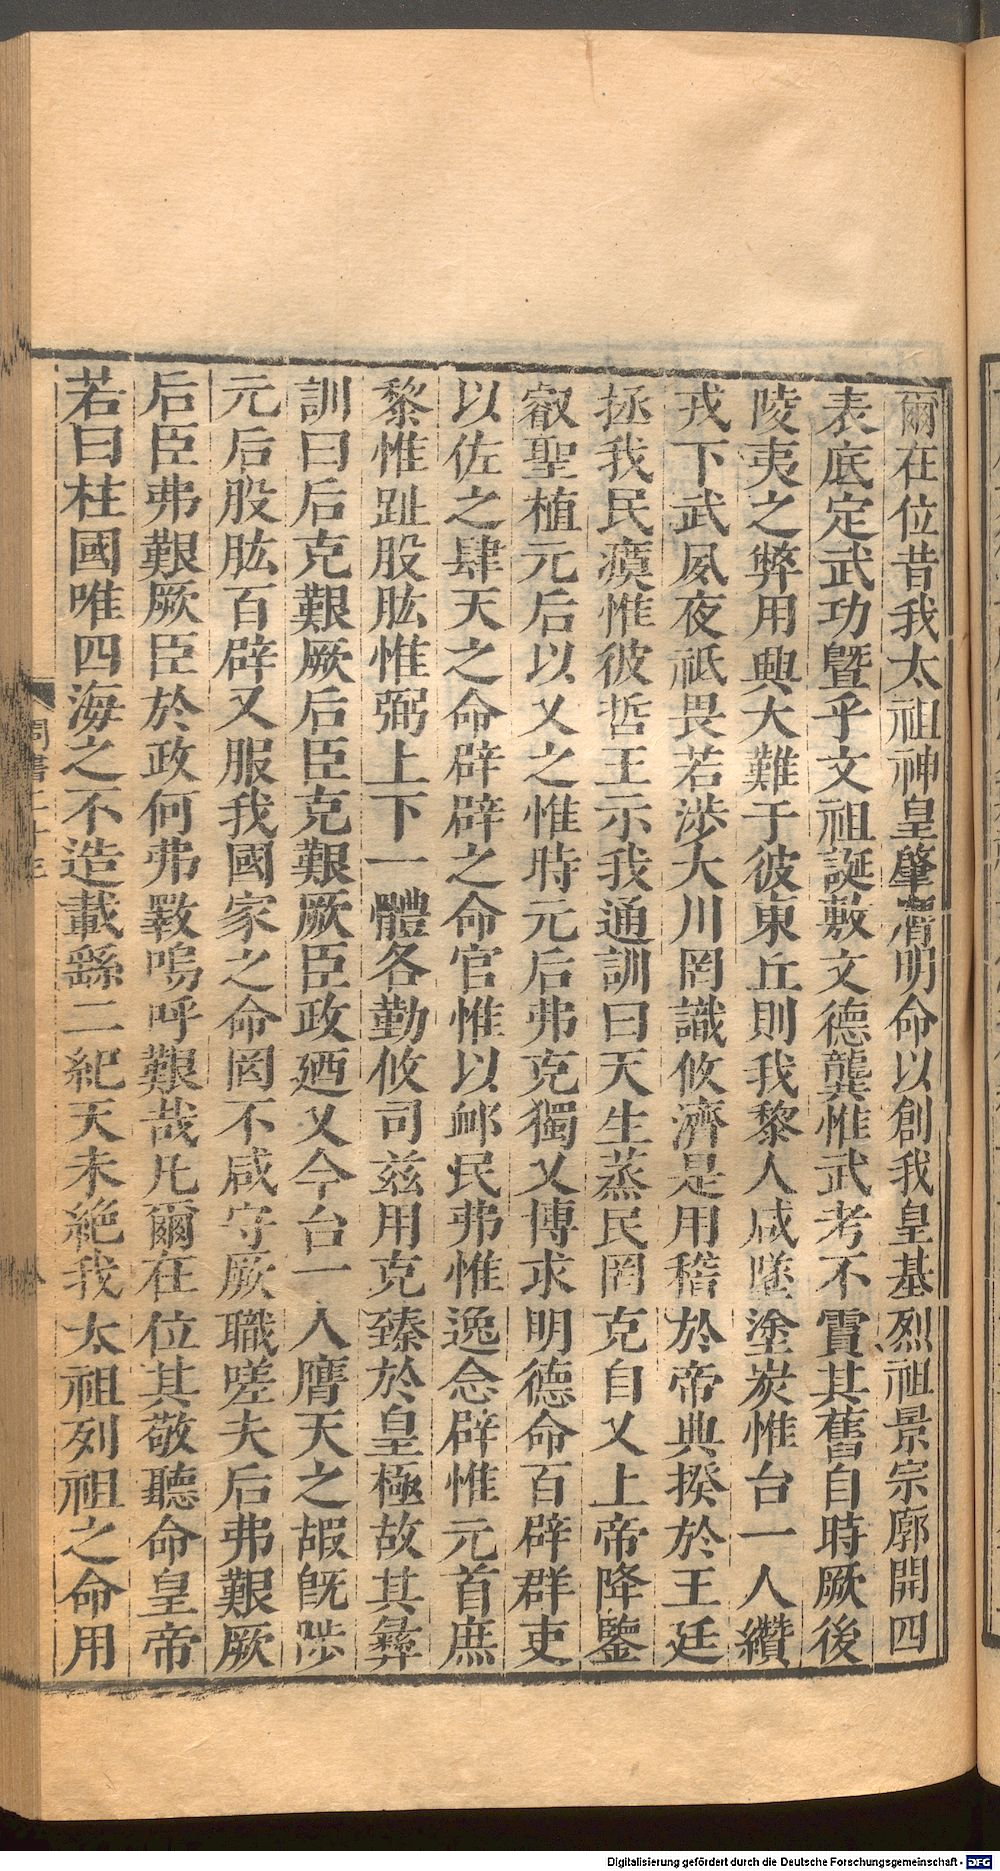 爾在位昔我太祖神皇肇膺明命以創我皇基烈祖景宗廓開四
表底定武功暨乎文祖誕敷文德龔惟武考不霣其舊自時厥後
陵夷之弊用興大難于彼東丘則我黎人咸墜塗炭惟台一人纘
戎下武夙夜祗畏若涉大川罔識攸濟是用稽於帝典揆於王廷
拯我民瘼惟彼哲王示我通訓曰天生蒸民罔克自乂上帝降鑒
叡聖植元后以乂之惟時元后弗克獨乂博求明德命百辟群吏
以佐之肆天之命辟辟之命官惟以䘏民弗惟逸念辟惟元首庶
黎惟趾股肱惟弼上下一體各勤攸司茲用克臻於皇極故其彝
訓曰后克艱厥后臣克艱厥臣政廼乂今台一人膺天之嘏旣陟
元后股肱百辟乂服我國家之命罔不咸守厥職嗟夫后弗艱厥
后臣弗艱厥臣於政何弗斁嗚呼艱哉凡爾在位其敬聽命皇帝
若曰柱國唯四海之不造載繇二紀天未絕我太祖列祖之命用
周書二十三
Digitalisierung gefördert durch die Deutsche Forschungsgemeinschaft - DFG